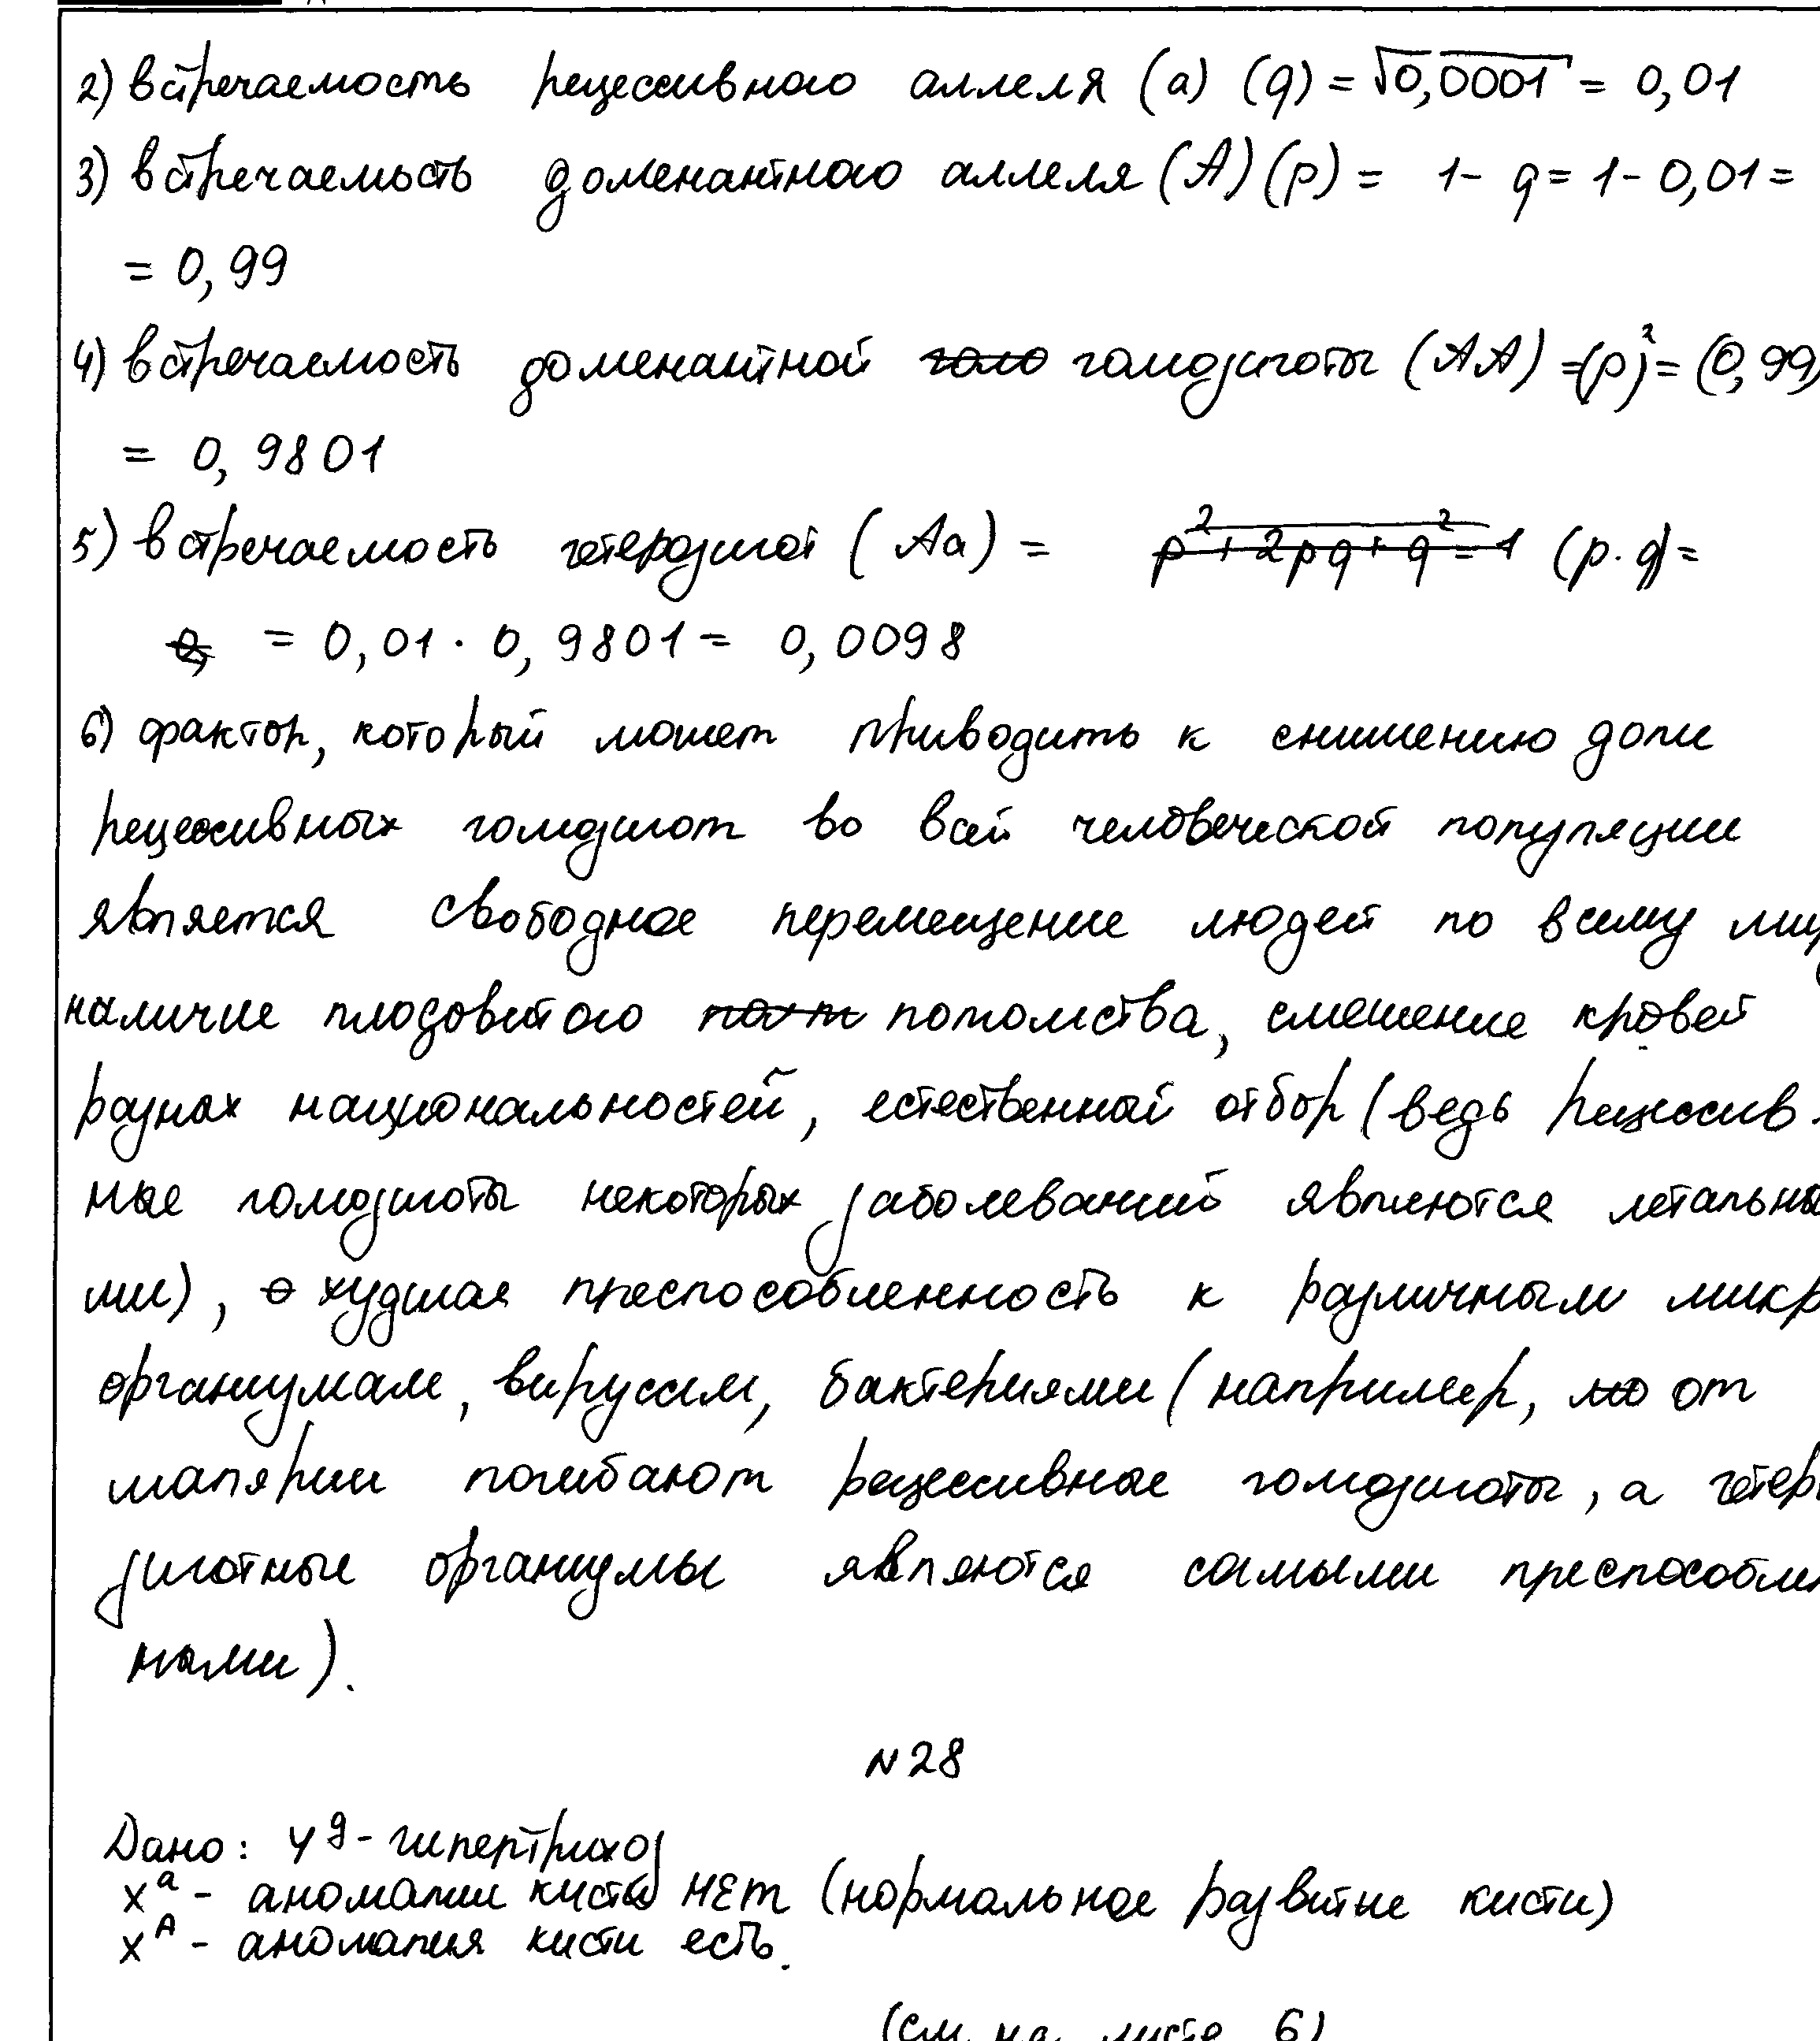 2) встречаемость рецессивного аллеля (а) (q) = √0,0001 = 0,01
3) встречаемость доменантного аллеля (А) (р) = 1 - q = 1 - 0,01 =
= 0,99
4) встречаемость доменантной гомо гомозиготы (АА) =(р)² = (0,99)
= 0,9801
5) встречаемость гетерозигот (Аа) = p² + 2pq + q² = 1 (p · q) =
0, = 0,01 · 0,9801 = 0,0098
6) фактор, который может приводить к снижению доли
рецессивных гомозигот во всей человеческой популяции
является свободное перемещение людей по всему миру
наличие плодовитого потомства, смешение кровей
разных национальностей, естественный отбор (ведь рецессив-
ные гомозиготы некоторых заболеваний являются летальны
ми), о худшая преспособленность к различным микр
организмам, вирусам, бактериями (например, мо от
малярии погибают рецессивные гомозиготы, а гетеро
зиготные организмы являются самыми преспособлен
ными).
№28
Дано: Yg - гипертрихоз
Xᵃ - аномалии кисты нет (нормальное развитие кисти)
Xᴬ - аномалия кисти есть.
(см на листе 6)